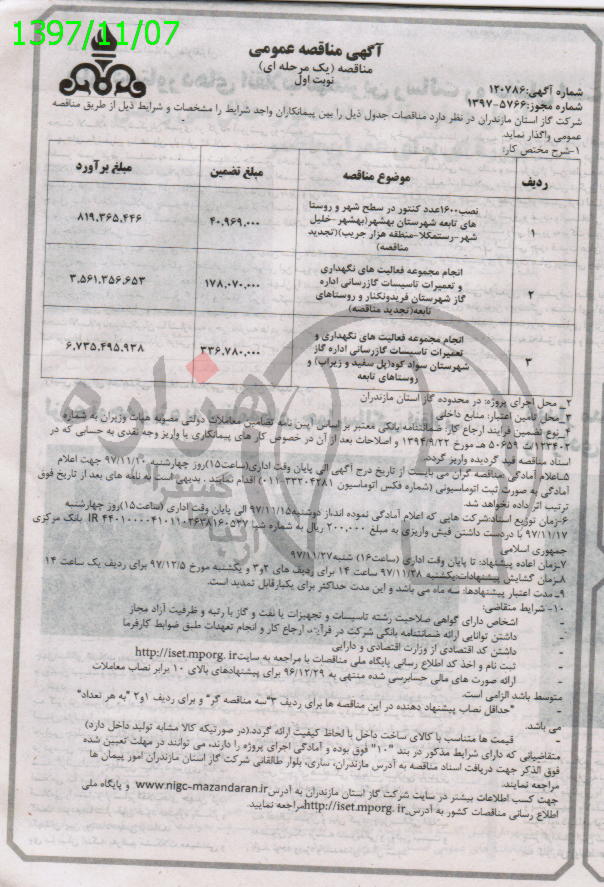 1397/11/07
آگهی مناقصه عمومی
مناقصه (یک مرحله ای)
نوبت اول
شماره آگهی:۱۲۰۷۸۶
شماره مجوز:۵۷۶۶-۱۳۹۷
شرکت گاز استان مازندران در نظر دارد مناقصات جدول ذیل را بین پیمانکاران واجد شرایط را مشخصات و شرایط ذیل از طریق مناقصه
عمومی واگذار نماید
۱-شرح مختص کار:
ردیف موضوع مناقصه مبلغ تضمین مبلغ برآورد
۱ نصب۱۶۰۰عدد کنتور در سطح شهر و روستا
های تابعه شهرستان بهشهر(بهشهر-خلیل
شهر-رستمکلا-منطقه هزار جریب)(تجدید
مناقصه) ۴۰.۹۶۹.۰۰۰ ۸۱۹.۳۶۵.۴۴۶
۲ انجام مجموعه فعالیت های نگهداری
و تعمیرات تاسیسات گازرسانی اداره
گاز شهرستان فریدونکنار و روستاهای
تابعه(تجدید مناقصه) ۱۷۸.۰۷۰.۰۰۰ ۳.۵۶۱.۳۵۶.۶۵۳
۳ انجام مجموعه فعالیت های نگهداری و
تعمیرات تاسیسات گازرسانی اداره گاز
شهرستان سواد کوه(پل سفید و زیراب) و
روستاهای تابعه ۳۳۶.۷۸۰.۰۰۰ ۶.۷۳۵.۴۹۵.۹۳۸
۲_ محل اجرای پروژه: در محدوده گاز استان مازندران
۳_محل تامین اعتبار: منابع داخلی
۴_نوع تضمین فرایند ارجاع کار: ضمانتنامه بانکی معتبر بر اساس آیین نامه تضامین معاملات دولتی مصوبه هیات وزیران به شماره
۱۲۳۴۰۲/ت ۵۰۶۵۹ هـ مورخ ۱۳۹۴/۹/۲۲ و اصلاحات بعد از آن در خصوص کار های پیمانکاری یا واریز وجه نقدی به حسابی که در
اسناد مناقصه قید گردیده واریز گردد.
۵_اعلام آمادگی :مناقصه گران می بایست از تاریخ درج آگهی الی پایان وقت اداری(ساعت۱۵)روز چهارشنبه ۹۷/۱۱/۱۰ جهت اعلام
آمادگی به صورت ثبت اتوماسیونی (شماره فکس اتوماسیون ۳۳۲۰۴۲۸۱-۰۱۱) اقدام نمایند . بدیهی است به نامه های بعد از تاریخ فوق
ترتیب اثر داده نخواهد شد.
۶-زمان توزیع اسناد:شرکت هایی که اعلام آمادگی نموده اند،از دوشنبه۹۷/۱۱/۱۵ الی پایان وقت اداری (ساعت۱۵)روز چهارشنبه
۹۷/۱۱/۱۷ با دردست داشتن فیش واریزی به مبلغ ۲۰۰.۰۰۰ ریال به شماره شبا IR بانک مرکزی
جمهوری اسلامی
۷_زمان اعاده پیشنهاد: تا پایان وقت اداری (ساعت۱۶) شنبه۹۷/۱۱/۲۷
۸_زمان گشایش پیشنهادات:یکشنبه ۹۷/۱۱/۲۸ ساعت ۱۴ برای ردیف های ۲و۳ و یکشنبه مورخ ۹۷/۱۲/۵ برای ردیف یک ساعت ۱۴
۹_ مدت اعتبار پیشنهادها: سه ماه می باشد و این مدت حداکثر برای یکبارقابل تمدید است.
۱۰- شرایط متقاضی:
- اشخاص دارای گواهی صلاحیت رشته تاسیسات و تجهیزات یا نفت و گاز با رتبه و ظرفیت آزاد مجاز
- داشتن توانایی ارائه ضمانتنامه بانکی شرکت در فرآیند ارجاع کار و انجام تعهدات طبق ضوابط کارفرما
- داشتن کد اقتصادی از وزارت اقتصادی و دارایی
- ثبت نام و اخذ کد اطلاع رسانی پایگاه ملی مناقصات با مراجعه به سایتhttp://iset.mporg. ir
- ارائه صورت های مالی حسابرسی شده منتهی به ۹۶/۱۲/۲۹ برای پیشنهادهای بالای ۱۰ برابر نصاب معاملات
متوسط باشد الزامی است.
- "حداقل نصاب پیشنهاد دهنده در این مناقصه ها برای ردیف ۳"سه مناقصه گر" و برای ردیف ۱و۲ "به هر تعداد"
می باشد.
- قیمت ها متناسب با کالای ساخت داخل با لحاظ کیفیت ارائه گردد.(در صورتیکه کالا مشابه تولید داخل دارد)
متقاضیانی که دارای شرایط مذکور در بند "۱۰" فوق بوده و آمادگی اجرای پروژه را دارند، می توانند در مهلت تعیین شده
فوق الذکر جهت دریافت اسناد مناقصه به آدرس مازندران، ساری، بلوار طالقانی شرکت گاز استان مازندران امور پیمان ها
مراجعه نمایند.
جهت کسب اطلاعات بیشتر در سایت شرکت گاز استان مازندران به آدرسwww.nigc-mazandaran.ir و پایگاه ملی
اطلاع رسانی مناقصات کشور به آدرسhttp://iset.mporg. ir مراجعه نمایید.